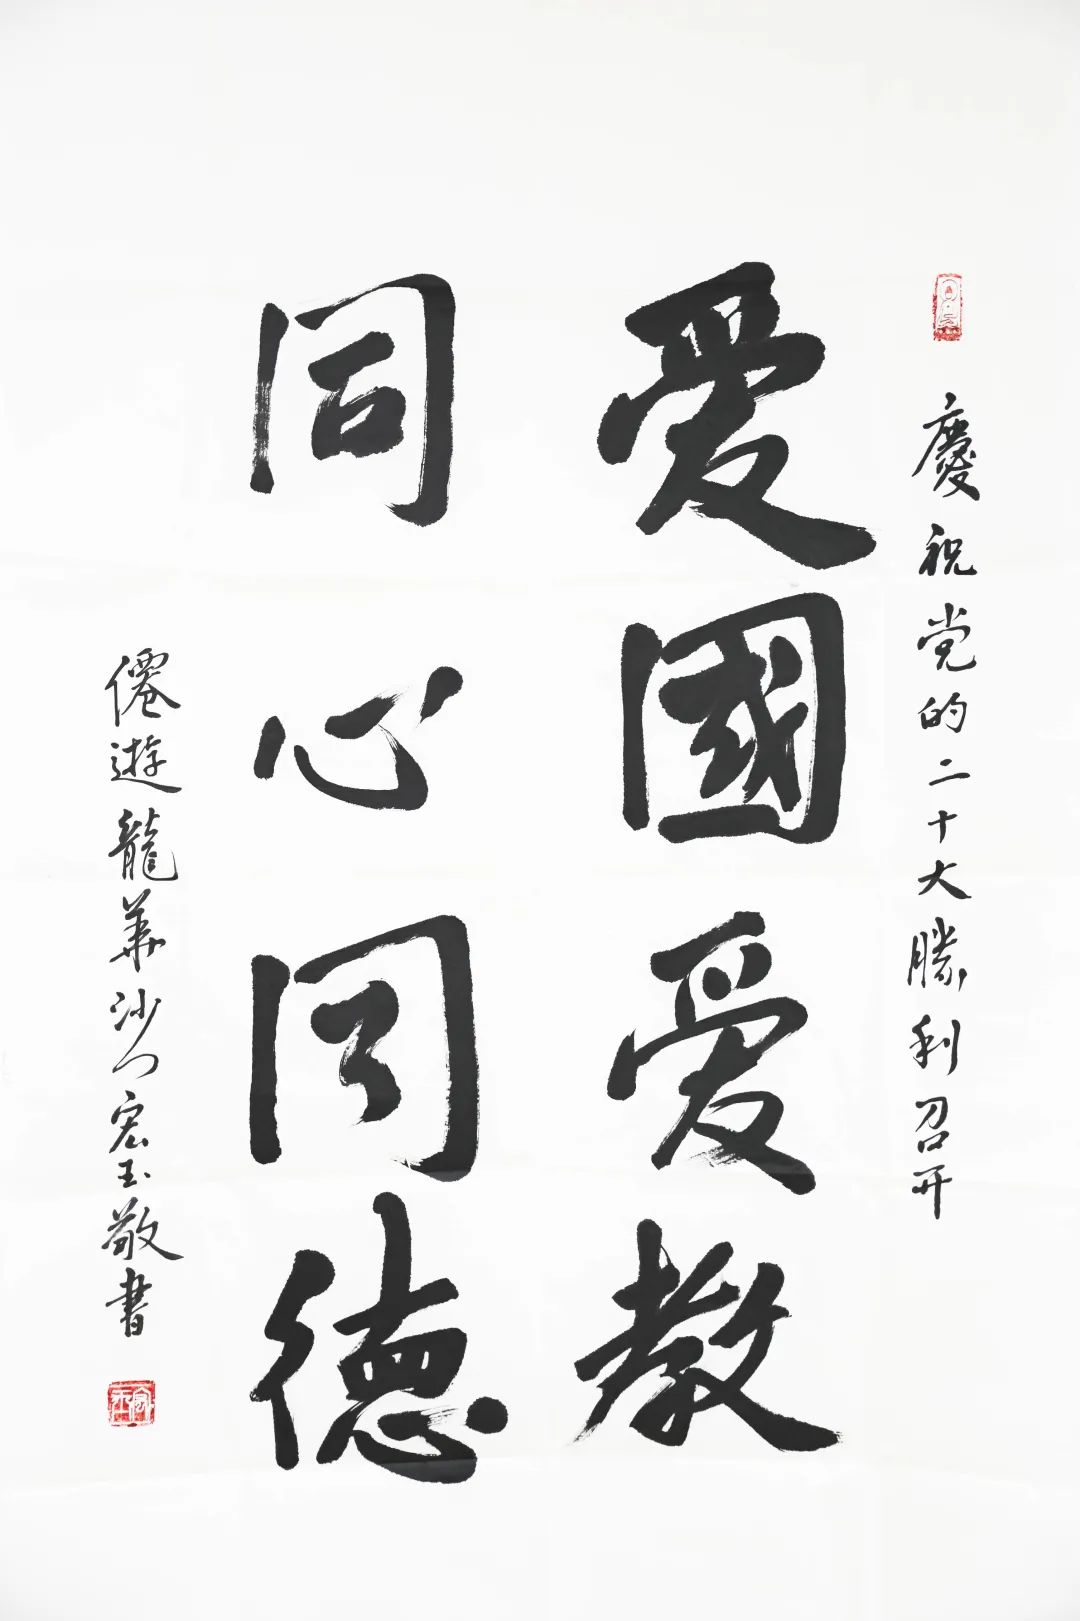 慶祝党的二十大勝利召开
愛國愛教
同心同德
僊遊龍華沙门宏玉敬書